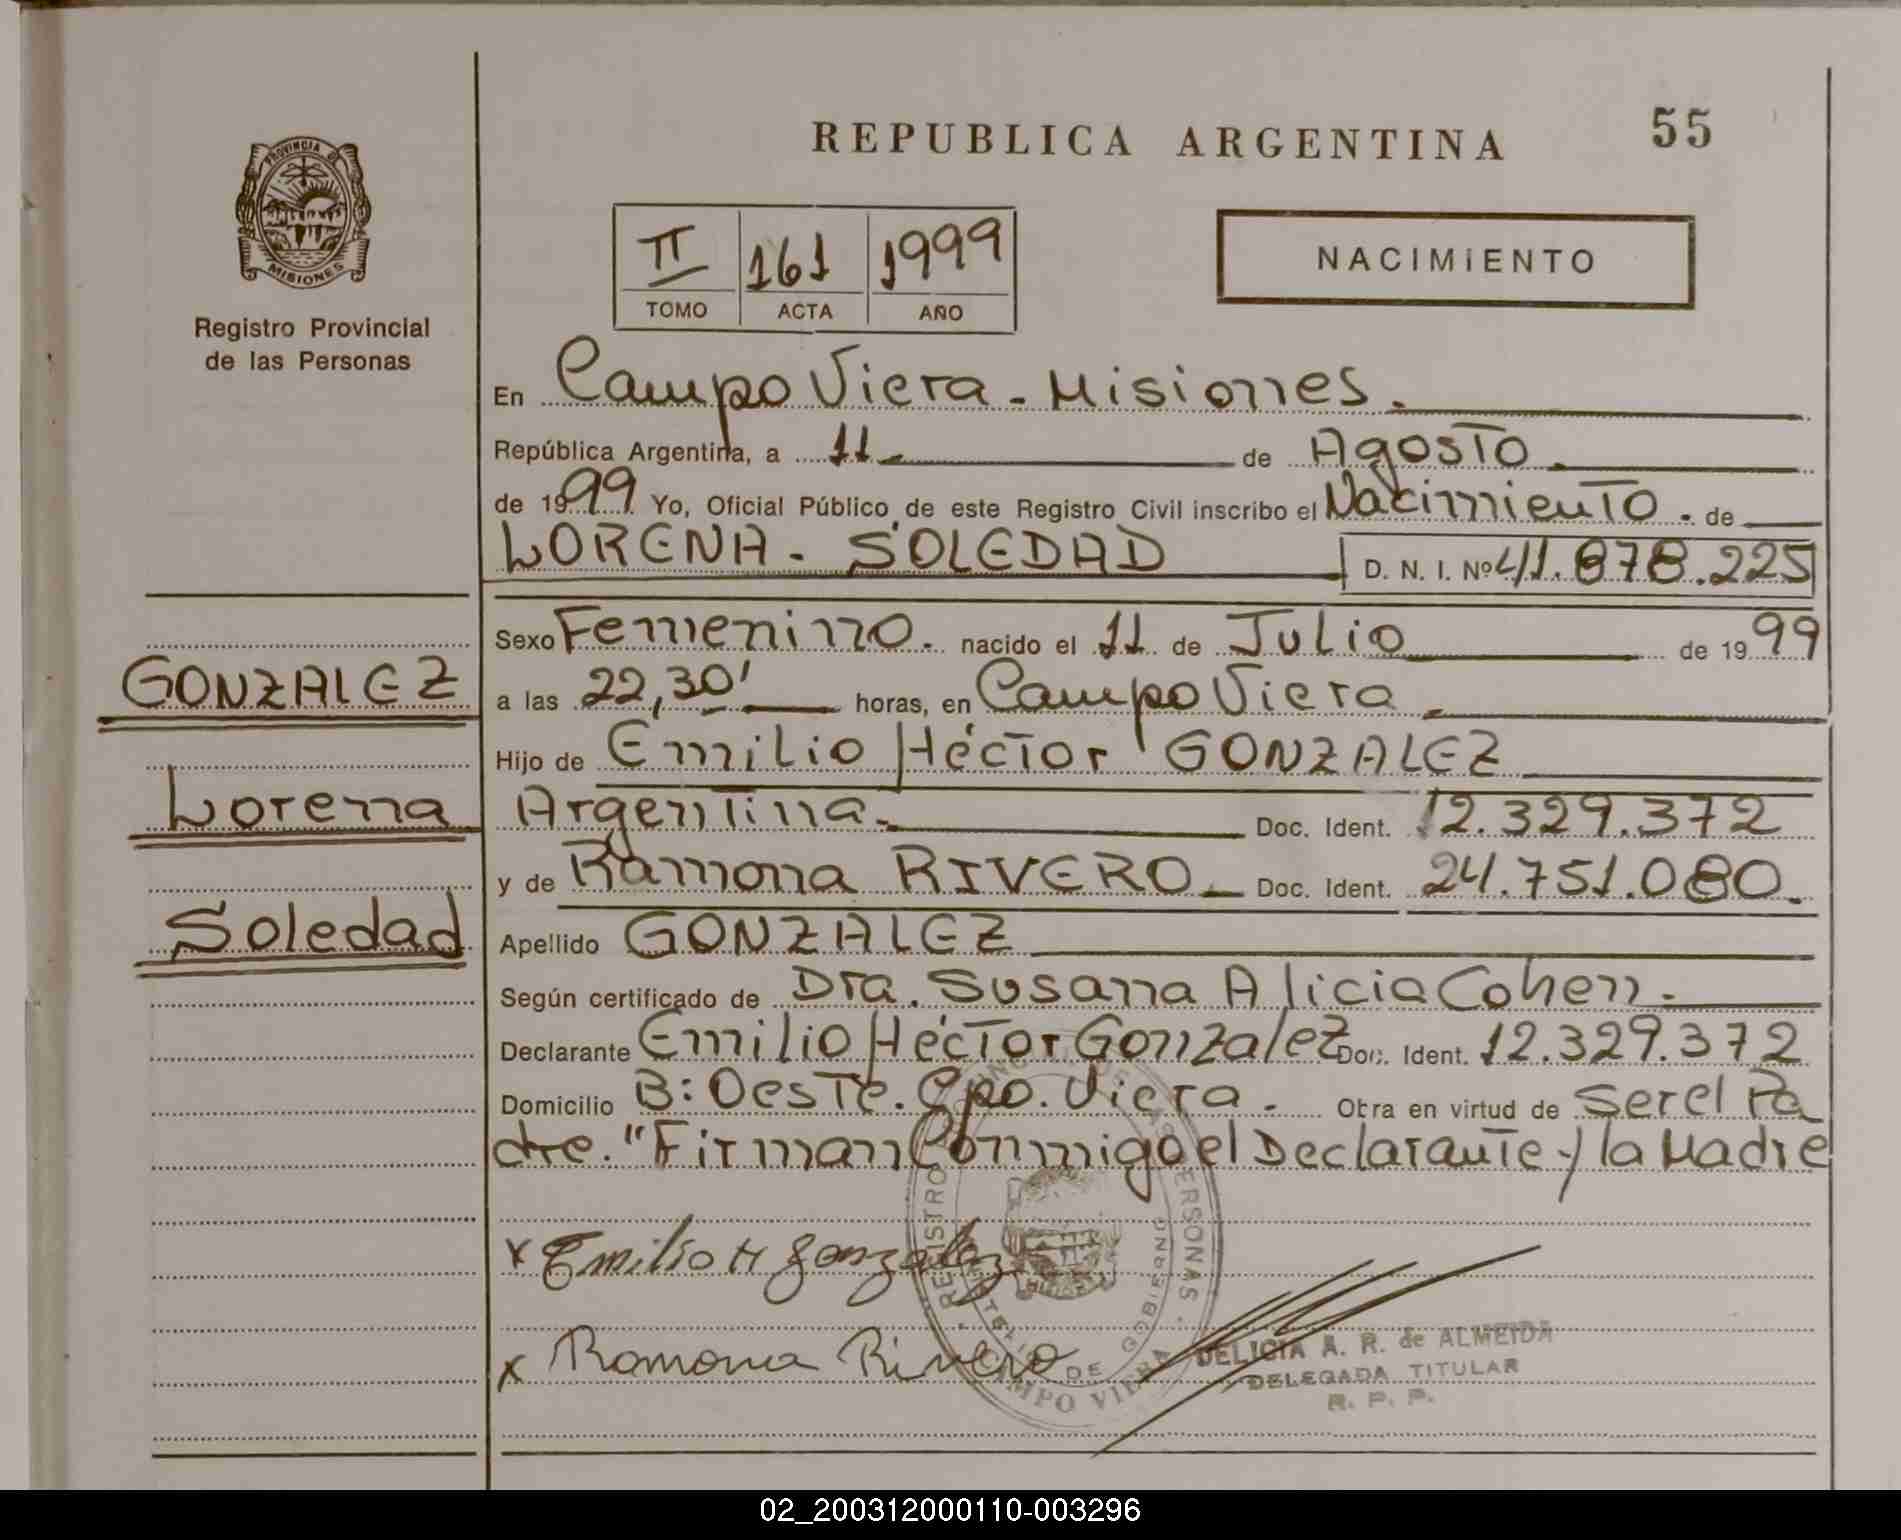 REPUBLICA ARGENTINA
55
PROVINCIA DE
MISIONES
Registro Provincial
de las Personas
II 161 1999
TOMO ACTA AÑO
NACIMIENTO
En Campo Viera - Misiones.
República Argentina, a 11 de Agosto
de 1999 Yo, Oficial Público de este Registro Civil inscribo el Nacimiento. de
LORENA - SOLEDAD D. N. I. Nº 41.878.225
Sexo Femenino. nacido el 11 de Julio de 1999
GONZALEZ
a las 22,30' horas, en Campo Viera
Hijo de Emilio Héctor GONZALEZ
Lorena
Argentina. Doc. Ident. 12.329.372
y de Ramona RIVERO Doc. Ident. 24.751.080.
Soledad
Apellido GONZALEZ
Según certificado de Dra. Susana Alicia Cohen.
Declarante Emilio Héctor Gonzalez Doc. Ident. 12.329.372
Domicilio B: Oeste. Cpo. Viera. Obra en virtud de Ser el Pa
dre. "Firman Conmigo el Declarante y la Madre
x Emilio H Gonzalez
x Ramona Rivero
REGISTRO PERSONAS
DE GOBIERNO
CAMPO VIERA
DELICIA A. R. de ALMEIDA
DELEGADA TITULAR
R. P. P.
02_200312000110-003296